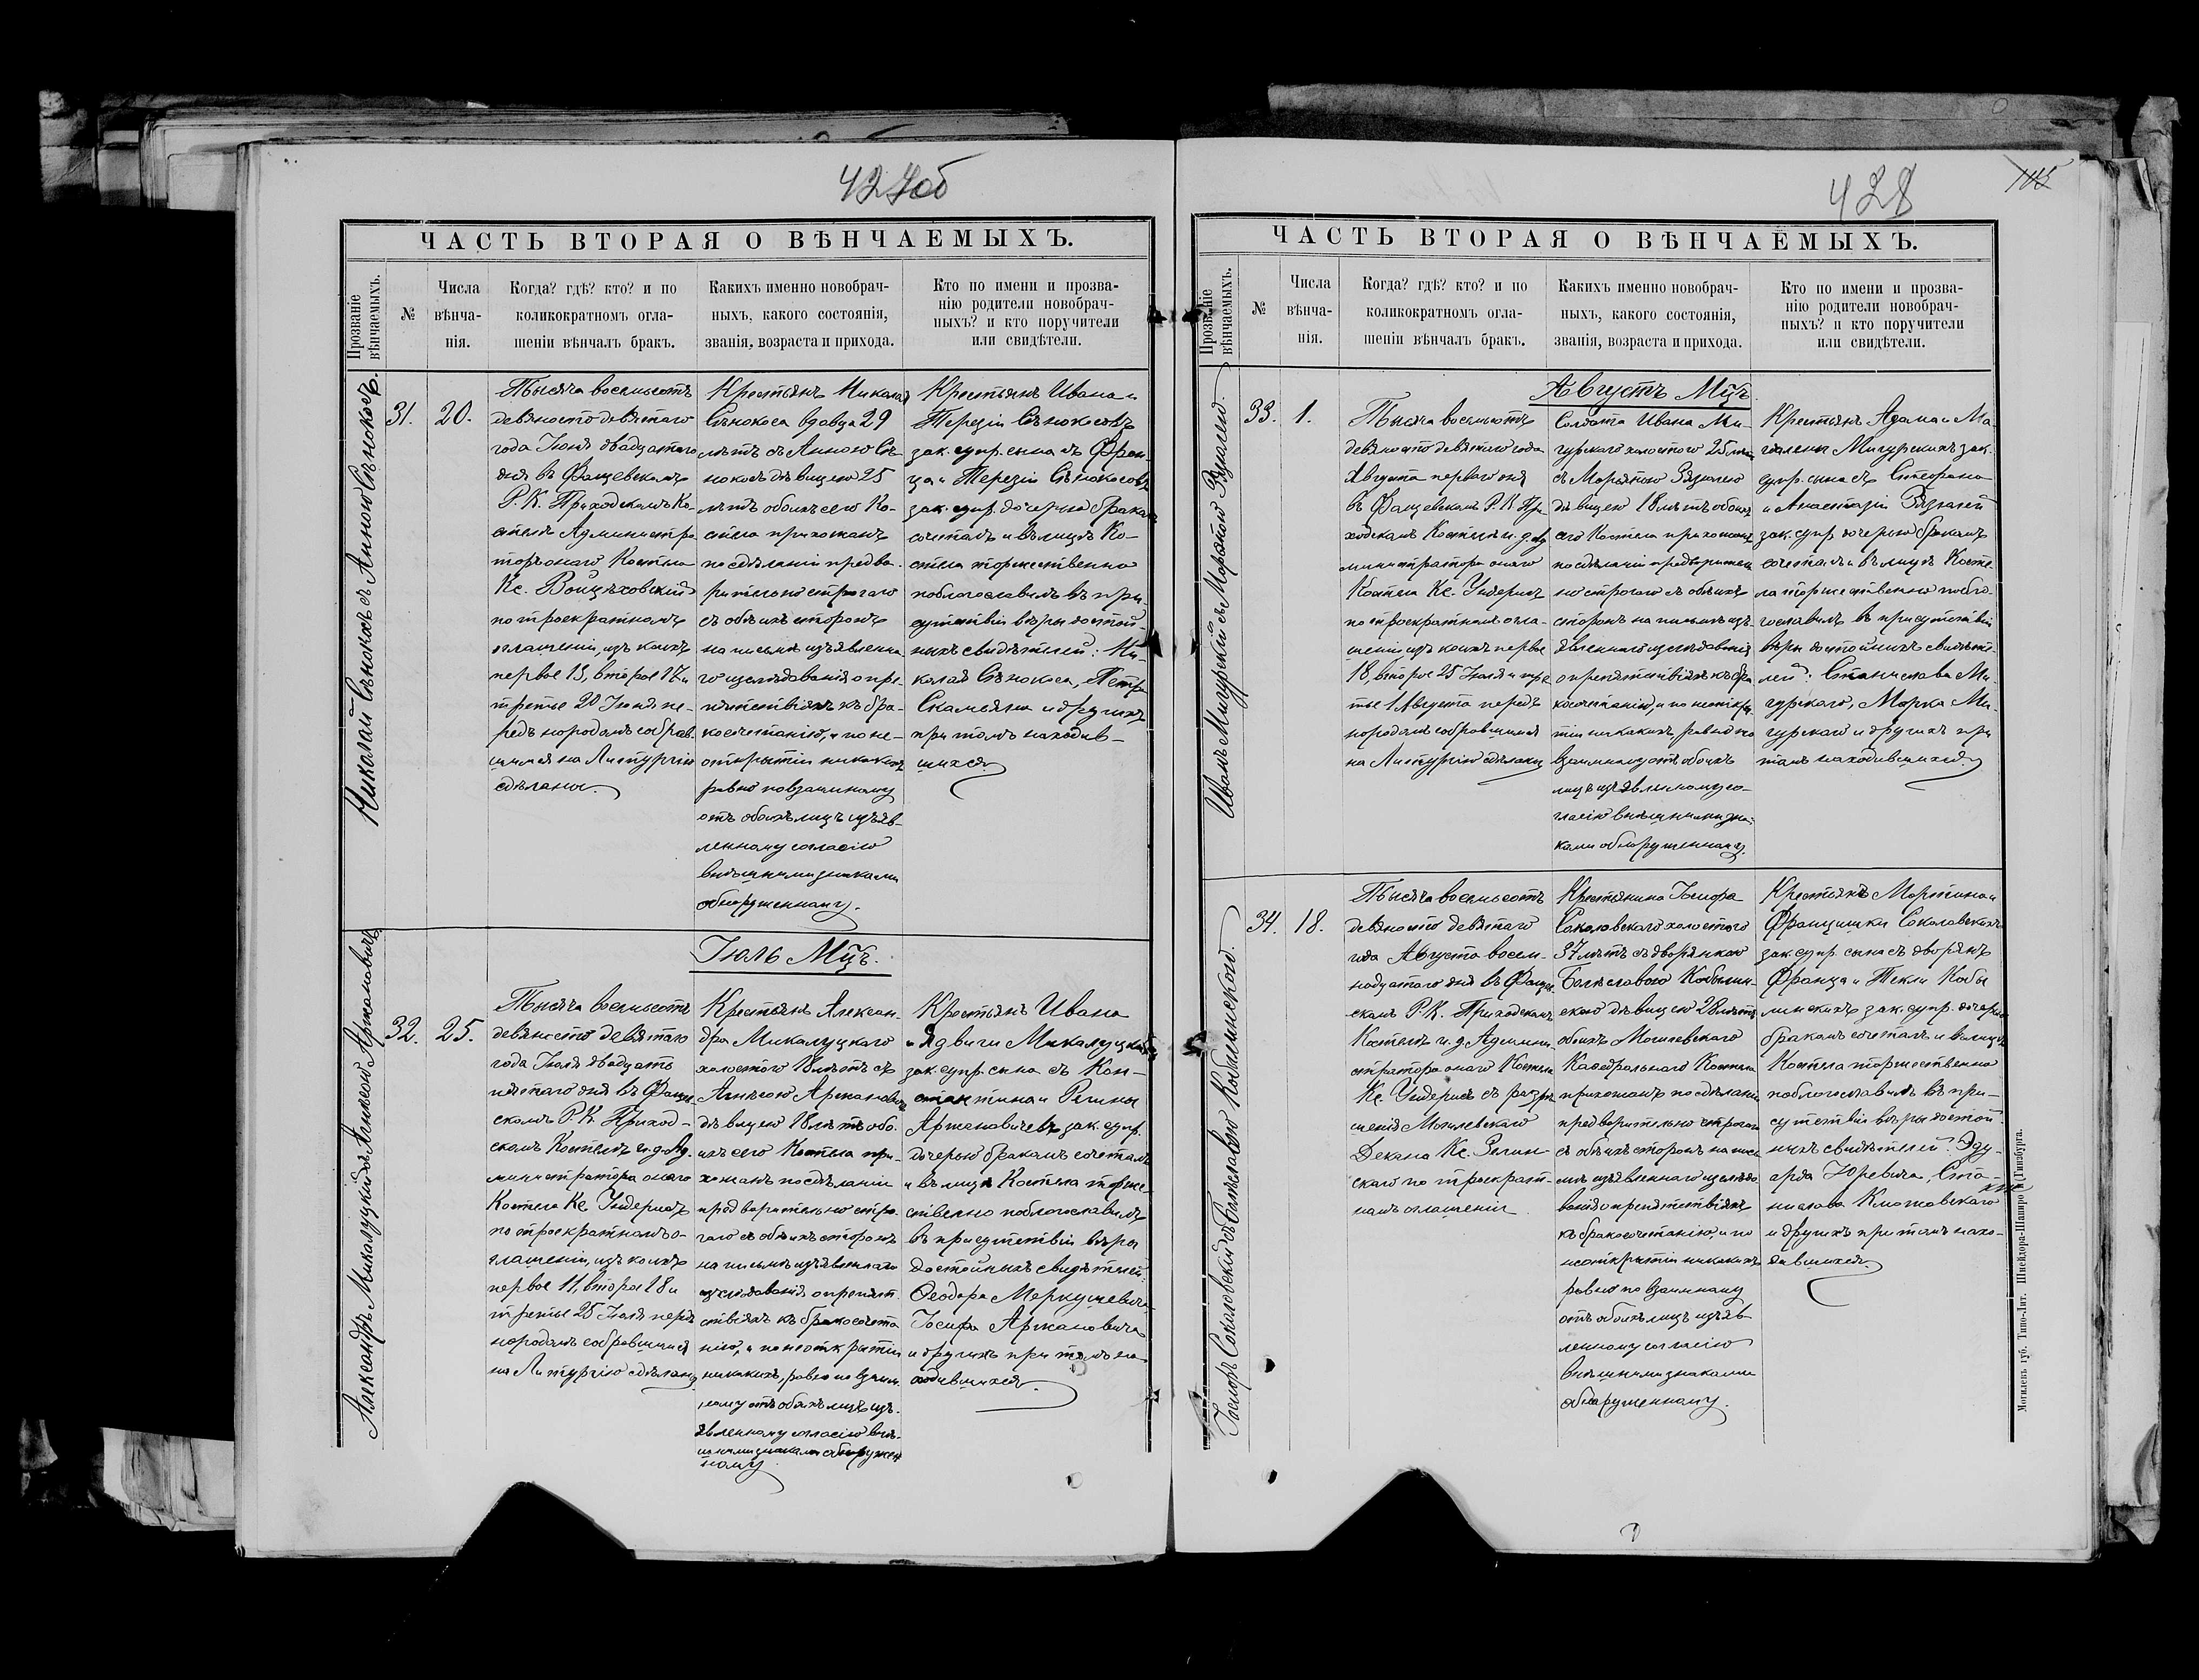 427об
ЧАСТЬ ВТОРАЯ О ВѢНЧАЕМЫХЪ.
Прозваніе вѣнчаемыхъ.
№
Числа
вѣнча-
нія.
Когда? гдѣ? кто? и по
коликократномъ огла-
шеніи вѣнчалъ бракъ.
Какихъ именно новобрач-
ныхъ, какого состоянія,
званія, возраста и прихода.
Кто по имени и прозва-
нію родители новобрач-
ныхъ? и кто поручители
или свидѣтели.
Николай Сѣнокосъ съ Анною Сѣнокосъ.
31.
20.
Тысяча восемьсотъ
девяносто девятаго
года Іюня двадцатаго
дня въ Фащевскомъ
Р. К. Приходскомъ Ко-
стелѣ Администра-
торъ онаго Костела
Кс. Войцѣховскій
по троекратномъ
оглашеніи, изъ коихъ
первое 13, второе 17 и
третье 20 Іюня пе-
редъ народомъ собрав-
шимся на Литургію
сдѣланы.
Крестьянъ Николая
Сѣнокоса вдовца 29
лѣтъ съ Анною Сѣ-
нокосъ дѣвицею 25
лѣтъ обоихъ сего Ко-
стела прихожанъ
по сдѣланіи предва-
рительно строгаго
съ обѣихъ сторонъ
на письмѣ изъявленна-
го изслѣдованія о пре-
пятствіяхъ къ бра-
косочетанію, и по не-
открытіи никакихъ
равно по взаимному
отъ обоихъ лицъ изъяв-
ленному согласію
внѣшними знаками
обнаруженному.
Крестьянъ Ивана и
Терезіи Сѣнокосовъ
зак. супр. сына съ Фран-
ца и Терезіи Сѣнокосовъ
зак. супр. дочерью бракомъ
сочеталъ и въ лицѣ Ко-
стела торжественно
поблагославилъ въ при-
сутствіи вѣры достой-
ныхъ свидѣтелей: Ни-
колая Сѣнокоса, Петра
Скамьяна и другихъ
при томъ находив-
шихся.
Іюль Мцъ.
Александръ Микалуцкій съ Агнѣсою Аржановичъ
32.
25.
Тысяча восемьсотъ
девяносто девятаго
года Іюля двадцать
пятаго дня въ Фащев-
скомъ Р. К. Приход-
скомъ Костелѣ и. д. Ад-
министратора онаго
Костела Кс. Ундерисъ
по троекратномъ о-
глашеніи, изъ коихъ
первое 11, второе 18 и
третье 25 Іюля передъ
народомъ собравшимся
на Литургію сдѣланы.
Крестьянъ Алексан-
дра Микалуцкаго
холостого 18 лѣтъ съ
Агнѣсою Аржановичъ
дѣвицею 18 лѣтъ обо-
ихъ сего Костела при-
хожанъ по сдѣланіи
предварительно стро-
гаго съ обѣихъ сторонъ
на письмѣ изъявленнаго
изслѣдованія о препят-
ствіяхъ къ бракосочета-
нію, и по неоткрытіи
никакихъ, равно по взаим-
ному отъ обоихъ лицъ изъ-
явленному согласію внѣ-
шними знаками обнаружен-
ному.
Крестьянъ Ивана
и Ядвиги Микалуцкихъ
зак. супр. сына съ Кон-
стантина и Регины
Аржановичевъ зак. супр.
дочерью бракомъ сочеталъ
и въ лицѣ Костела торже-
ственно поблагославилъ
въ присутствіи вѣры
достойныхъ свидѣтелей:
Ѳеодора Меркушевича
Іосифа Аржановича
и другихъ при томъ на-
ходившихся.
428
ЧАСТЬ ВТОРАЯ О ВѢНЧАЕМЫХЪ.
Прозваніе вѣнчаемыхъ.
№
Числа
вѣнча-
нія.
Когда? гдѣ? кто? и по
коликократномъ огла-
шеніи вѣнчалъ бракъ.
Какихъ именно новобрач-
ныхъ, какого состоянія,
званія, возраста и прихода.
Кто по имени и прозва-
нію родители новобрач-
ныхъ? и кто поручители
или свидѣтели.
Августъ Мцъ.
33.
1.
Тысяча восемьсотъ
девяносто девятаго года
Августа перваго дня
въ Фащевскомъ Р. К. При-
ходскомъ Костелѣ и. д. Ад-
министратора онаго
Костела Кс. Ундерисъ
по троекратномъ огла-
шеніи изъ коихъ первое
18, второе 25 Іюля и тре-
тье 1 Августа передъ
народомъ собравшимся
на Литургію сдѣланы
Солдата Ивана Ми-
гурскаго холостого 25 лѣтъ
дѣвицею 18 лѣтъ обоихъ
сего Костела прихожанъ
по сдѣланіи предваритель-
но строгаго съ обѣихъ
сторонъ на письмѣ изъ-
явленнаго изслѣдованія
о препятствіяхъ къ бра-
косочетанію, и по неоткры-
тіи никакихъ, равно по
взаимному отъ обоихъ
лицъ изъявленному со-
гласію внѣшними зна-
ками обнаруженному.
Крестьянъ Адама и Ма-
гдалены Мигурскихъ зак.
супр. сына съ Стефана
зак. супр. дочерью бракомъ
сочеталъ и въ лицѣ Косте-
ла торжественно побла-
гославилъ въ присутствіи
вѣры достойныхъ свидѣте-
лей: Станислава Ми-
гурскаго, Марка Ми-
гурскаго и другихъ при
томъ находившихся.
Іосифъ Соколовскій съ Болеславою Кобылинскою.
34.
18.
Тысяча восемьсотъ
девяносто девятаго
года Августа восем-
надцатаго дня въ Фащев-
скомъ Р. К. Приходскомъ
Костелѣ и. д. Админи-
стратора онаго Костела
Кс. Ундерисъ съ разрѣ-
шенія Могилевскаго
Декана Кс. Зелин-
скаго по троекрат-
номъ оглашеніи
Крестьянина Іосифа
Соколовскаго холостого
37 лѣтъ съ дворянкою
Болеславою Кобылин-
скою дѣвицею 28 лѣтъ
обоихъ Могилевскаго
Каѳедральнаго Костела
прихожанъ по сдѣланіи
предварительно строгаго
съ обѣихъ сторонъ на пись-
мѣ изъявленнаго изслѣдо-
ванія о препятствіяхъ
къ бракосочетанію, и по
неоткрытіи никакихъ
равно по взаимному
отъ обоихъ лицъ изъяв-
ленному согласію
внѣшними знаками
обнаруженному.
Крестьянъ Мартина и
Францишки Соколовскихъ
зак. супр. сына съ дворянъ
Франца и Текли Кобы-
линскихъ зак. супр. дочерью
бракомъ сочеталъ и въ лицѣ
Костела торжественно
поблагославилъ въ при-
сутствіи вѣры достой-
ныхъ свидѣтелей: Эду-
арда Юревича, Ста-
нислава Климовскаго
и другихъ при томъ нахо-
дившихся.
Могилевъ губ. Типо-Лит. Шнейдора-Шапиро и Гинзбурга.